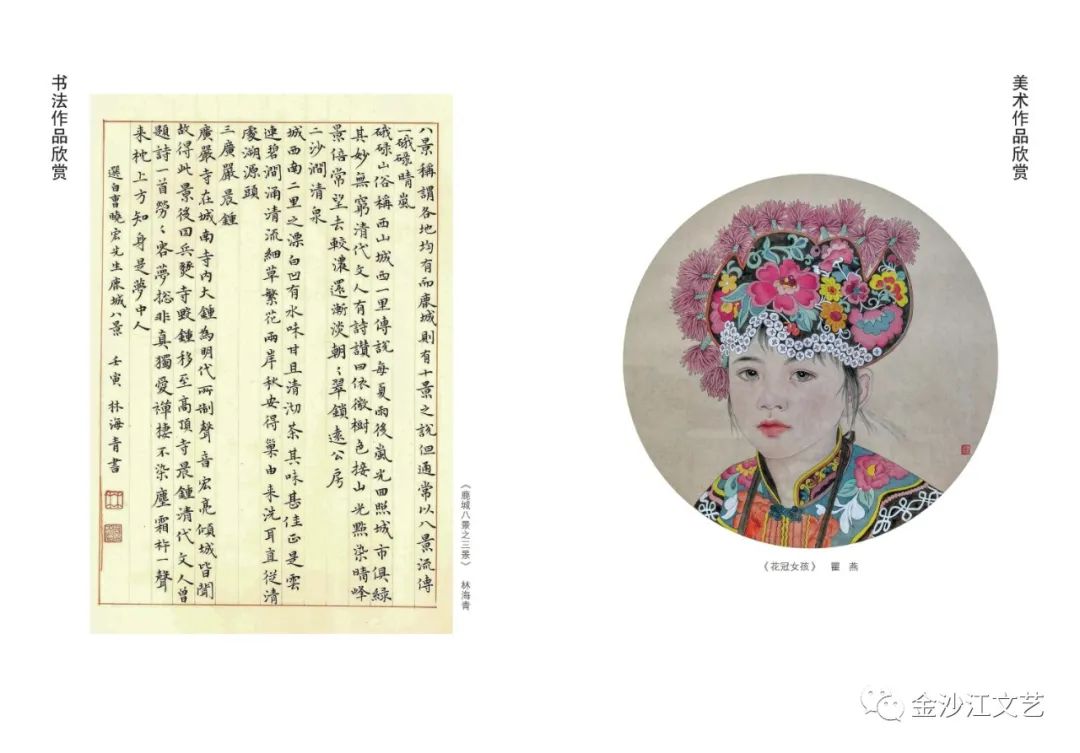 书法作品欣赏
八景稱謂各地均有而鹿城則有十景之說但通常以八景流傳
一峨碌晴嵐
峨碌山俗稱西山城西一里傳說每夏雨後嵐光回照城市俱綠
其妙無窮清代文人有詩讚曰依微樹色接山光點染晴峰
景倍常望去較濃還漸淡朝〻翠鎖遠公房
二沙澗清泉
城西南二里之漂白凹有水味甘且清沏茶其味甚佳正是雲
連碧澗涌清流細草繁花兩岸秋安得巢由来洗耳直從清
處溯源頭
三廣嚴晨鍾
廣嚴寺在城南寺內大鍾為明代所制聲音宏亮傾城皆聞
故得此景後因兵燹寺毀鍾移至高頂寺晨鍾清代文人曾
題詩一首勞〻客夢總非真獨愛禪棲不染塵霜杵一聲
来枕上方知身是夢中人
選自曹曉宏先生鹿城八景 壬寅 林海青書
《鹿城八景之三景》 林海青
美术作品欣赏
《花冠女孩》 瞿 燕
金沙江文艺